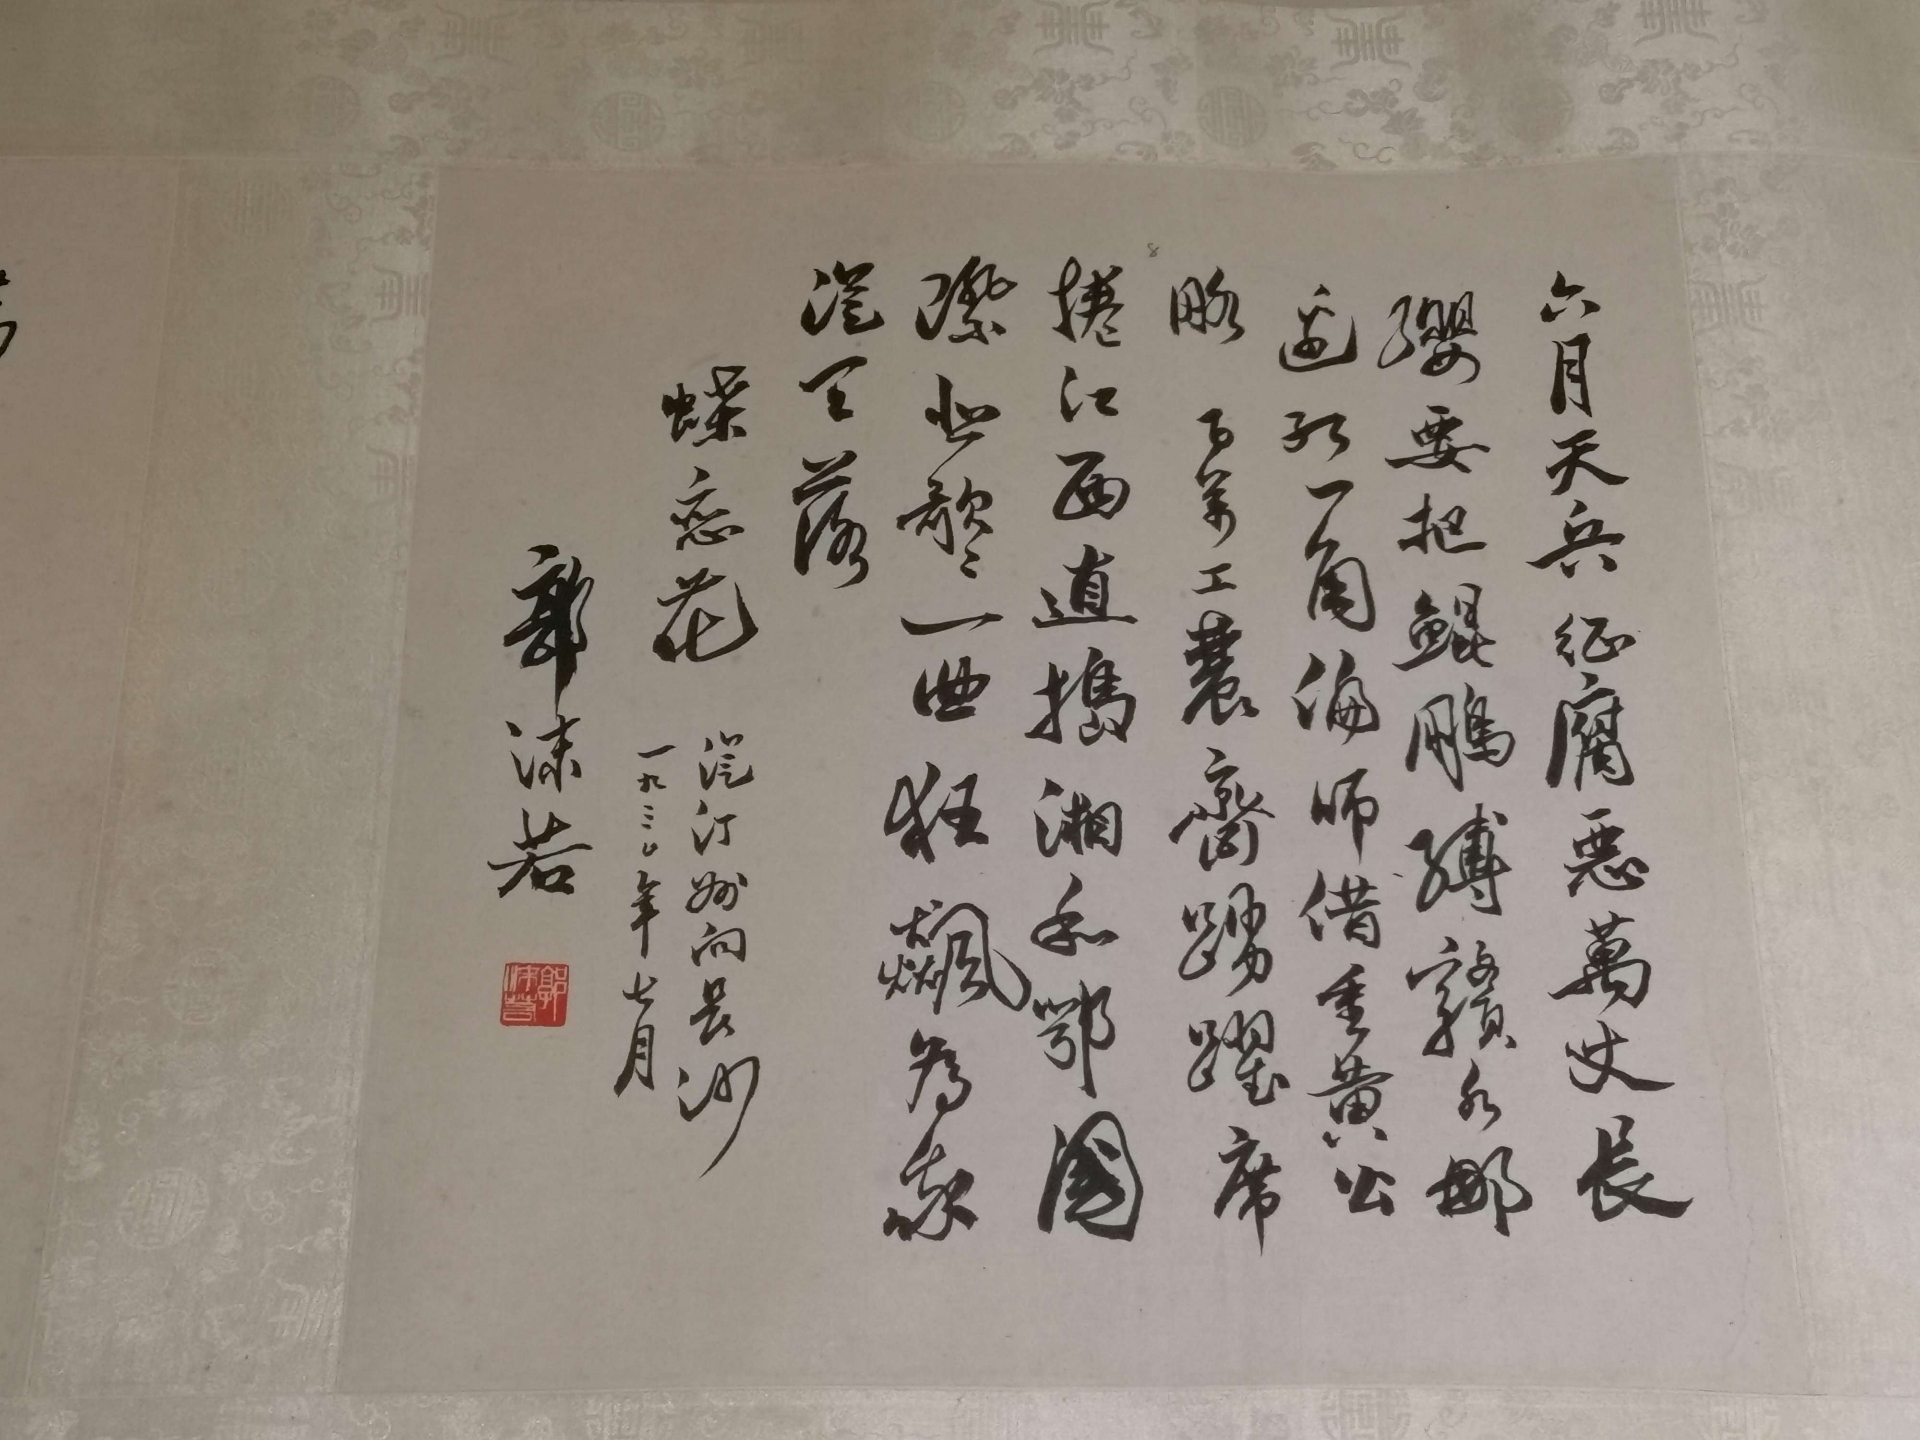 六月天兵征腐惡萬丈長
纓要把鯤鵬縛贛水那
邊紅一角偏師借重黃公
略 百萬工農齊踴躍席
捲江西直搗湘和鄂國
際悲歌〻一曲狂飆為我
從天落
蝶戀花 從汀州向長沙
一九三〇年七月
郭沫若
郭沫若